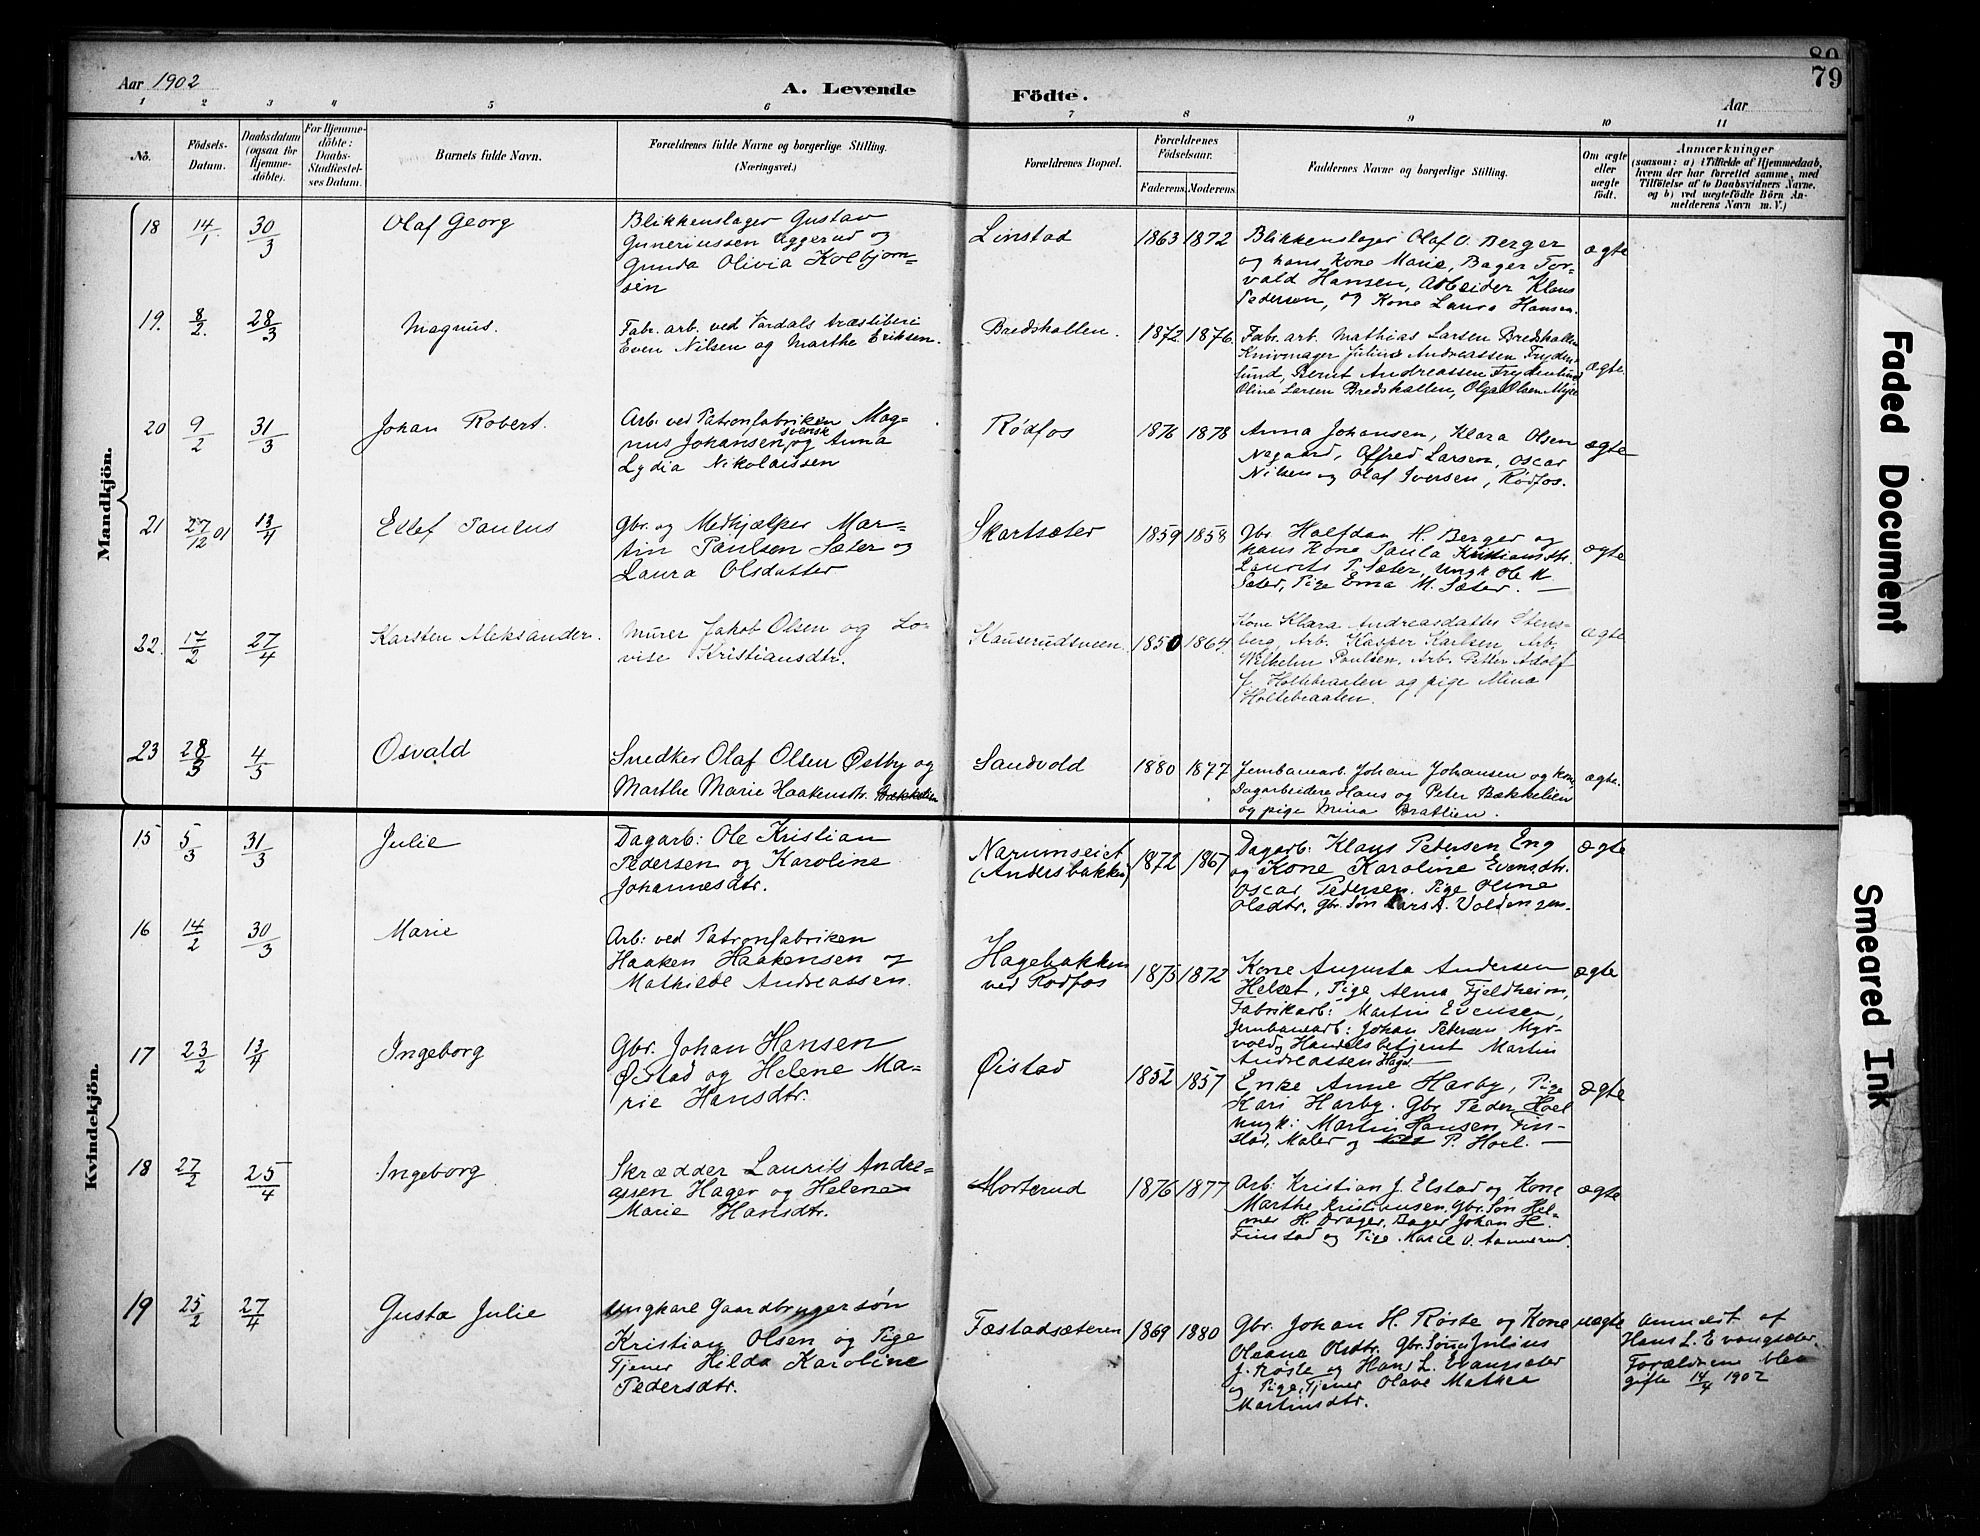 80
79
Aar 1902
A. Levende Födte.
Aar
1 2 3 4 5 6 7 8 9 10 11
No.
Födsels-
Datum.
Daabsdatum
(ogsaa for
Hjemme-
döbte).
For Hjemme-
döbte:
Daabs-
Stadfæstel-
ses Datum.
Barnets fulde Navn.
Forældrenes fulde Navne og borgerlige Stilling.
(Næringsvei.)
Forældrenes Bopæl.
Forældrenes
Födselsaar.
Faderens. Moderens.
Faddernes Navne og borgerlige Stilling.
Om ægte
eller
uægte
födt.
Anmærkninger
(saasom: a) i Tilfælde af Hjemmedaab,
hvem der har forrettet samme, med
Tilföielse af to Daabsvidners Navne,
og b) ved uægtefödte Börn An-
melderens Navn m. V.)
Mandkjön.
18 14/1. 30/3 Olaf Georg
Blikkenslager Gustav
Guneriussen Eggerud og
Gunda Olivia Kolbjørn-
sen
Linstad 1863 1872
Blikkenslager Olaf O. Berger
og hans Kone Marie, Bager Tor-
vald Hansen, Arbeider Klaus
Pedersen, og Kone Laura Hansen.
ægte
19. 8/2. 28/3 Magnus.
Fabr. arb. ved Vardals træsliberi
Even Nilsen og Marthe Eriksen.
Bredshallen. 1872. 1876.
Fabr. arb. Mathias Larsen Bredshallen
Knivmager Julius Andreassen Fryden-
lund, Bernt Andreassen Frydenlund
Oline Larsen Bredshallen, Olga Olsen Myre
ægte.
20 9/2 31/3 Johan Robert.
Arb. ved Patronfabriken Mag-
nus Johansen, svensk og Anna
Lydia Nikolaissen
Rødfos 1876 1878
Anna Johansen, Klara Olsen
Nagaard, Alfred Larsen, Oscar
Nilsen og Olaf Iversen, Rødfos.
ægte
21 27/12 01 13/4 Ellef Paulus
Gbr. og Medhjælper Mar-
tin Paulsen Sæter og
Laura Olsdatter
Skartsæter 1859 1858
Gbr. Halfdan H. Berger og
hans Kone Paula Kristiansdtr.
Laurits P. Sæter, Ungk Ole M
Sæter, Pige Ema M. Sæter. —
ægte
22. 17/2 27/4 Karsten Aleksander.
Murer Jakob Olsen og Lo-
vise Kristiansdtr.
Kauserudsveen. 1850 1864.
Kone Klara Andreasdatter Stens-
berg, Arb. Kasper Karlsen, Arb.
Wilhelm Paulsen, Arb. Petter Adolf
J. Holtebraaten og pige Mina
Holtebraaten.
ægte
23 28/3 4/5 Osvald
Snedker Olaf Olsen Østby og
Marthe Marie Haakensdtr. Bækkelien
Sandvold 1880 1877
Jernbanearb. Johan Johansen og kone,
Dagarbeidere Hans og Peter Bækkelien
og pige Mina Bratlien.
ægte.
Kvindekjön.
15 5/3 31/3 Julie
Dagarb: Ole Kristian
Pedersen og Karoline
Johannesdtr.
Narumseiet
(Andersbakken) 1872 1867
Dagarb: Klaus Petersen Eng
og Kone Karoline Evensdtr.
Oscar Pedersen. Pige Oline
Olsdtr. gbr. Søn Lars A. Voldengen.
ægte
16 14/2 30/3 Marie
Arb: ved Patronfabriken
Haaken Haakensen og
Mathilde Andreassen.
Hagebakken
ved Rødfos 1875 1872
Kone Augusta Andersen
Helset, Pige Alma Fjeldheim,
Fabrikarb: Martin Evensen,
Jernbanearb: Johan Petersen Myr-
vold, Handelsbetjent Martin
Andreassen Hager —
ægte
17 23/2 13/4 Ingeborg
Gbr. Johan Hansen
Øistad og Helene Ma-
rie Hansdtr.
Øistad 1852 1857
Enke Anne Harby, Pige
Kari Harby. Gbr Peder Hoel
Ungk: Martin Hansen Fin-
stad, Maler og P. Hoel. —
ægte
18 27/2 25/4 Ingeborg
Skrædder Laurits Andre-
assen Hager og Helene
Marie Hansdtr.
Morterud 1876 1877
Arb. Kristian J. Elstad og Kone
Marthe Kristiansen, gbr. Søn Hel-
mer H. Drager, Bager Johan H.
Finstad og Pige Marie O. Aannerud.
ægte
19 25/2 27/4 Gusta Julie
Ungkarl Gaardbrugersøn
Kristian Olsen og Pige
Tjener Hilda Karoline
Pedersdtr.
Fæstadsæteren 1869 1880
Gbr. Johan H. Røste og Kone
Oleane Olsdtr. Gbr. Søn Julius
J. Røste og Hans L. Evangsæter
og Pige, Tjener Olave Mathea
Martinsdtr.
uægte
Anmeldt af
Hans L. Evangsæter.
Forældrene blev
gifte 14/4 1902
Faded Document
Smeared Ink